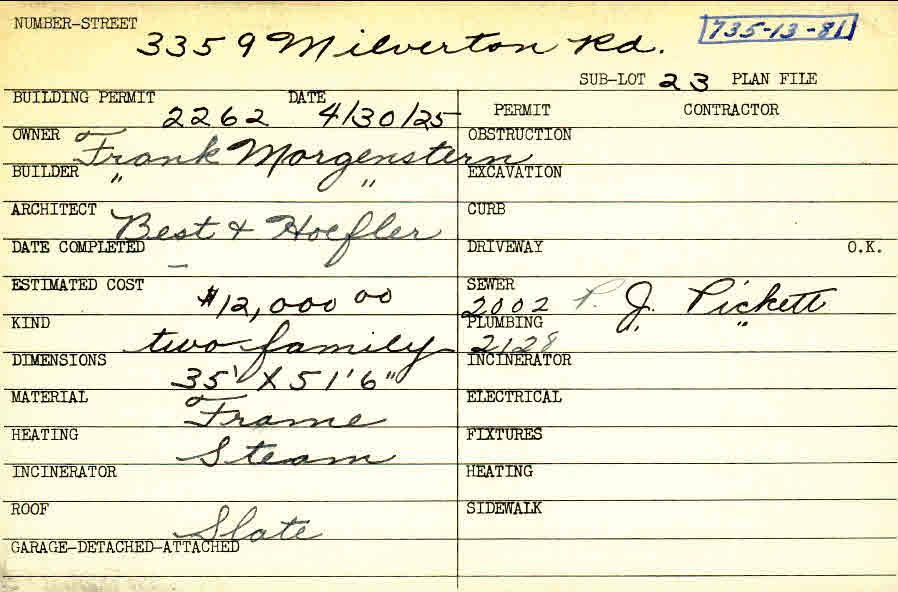 NUMBER-STREET
3359 Milverton Rd.
735-13-81
SUB-LOT 23 PLAN FILE
BUILDING PERMIT 2262 DATE 4/30/25
PERMIT CONTRACTOR
OWNER Frank Morgenstern
OBSTRUCTION
BUILDER " "
EXCAVATION
ARCHITECT Best & Hoefler
CURB
DATE COMPLETED –
DRIVEWAY O.K.
ESTIMATED COST $12,000 00
SEWER 2002 P. J. Pickett
KIND two family
PLUMBING 2128 "
DIMENSIONS 35' X 51'6"
INCINERATOR
MATERIAL Frame
ELECTRICAL
HEATING Steam
FIXTURES
INCINERATOR
HEATING
ROOF Slate
SIDEWALK
GARAGE-DETACHED-ATTACHED